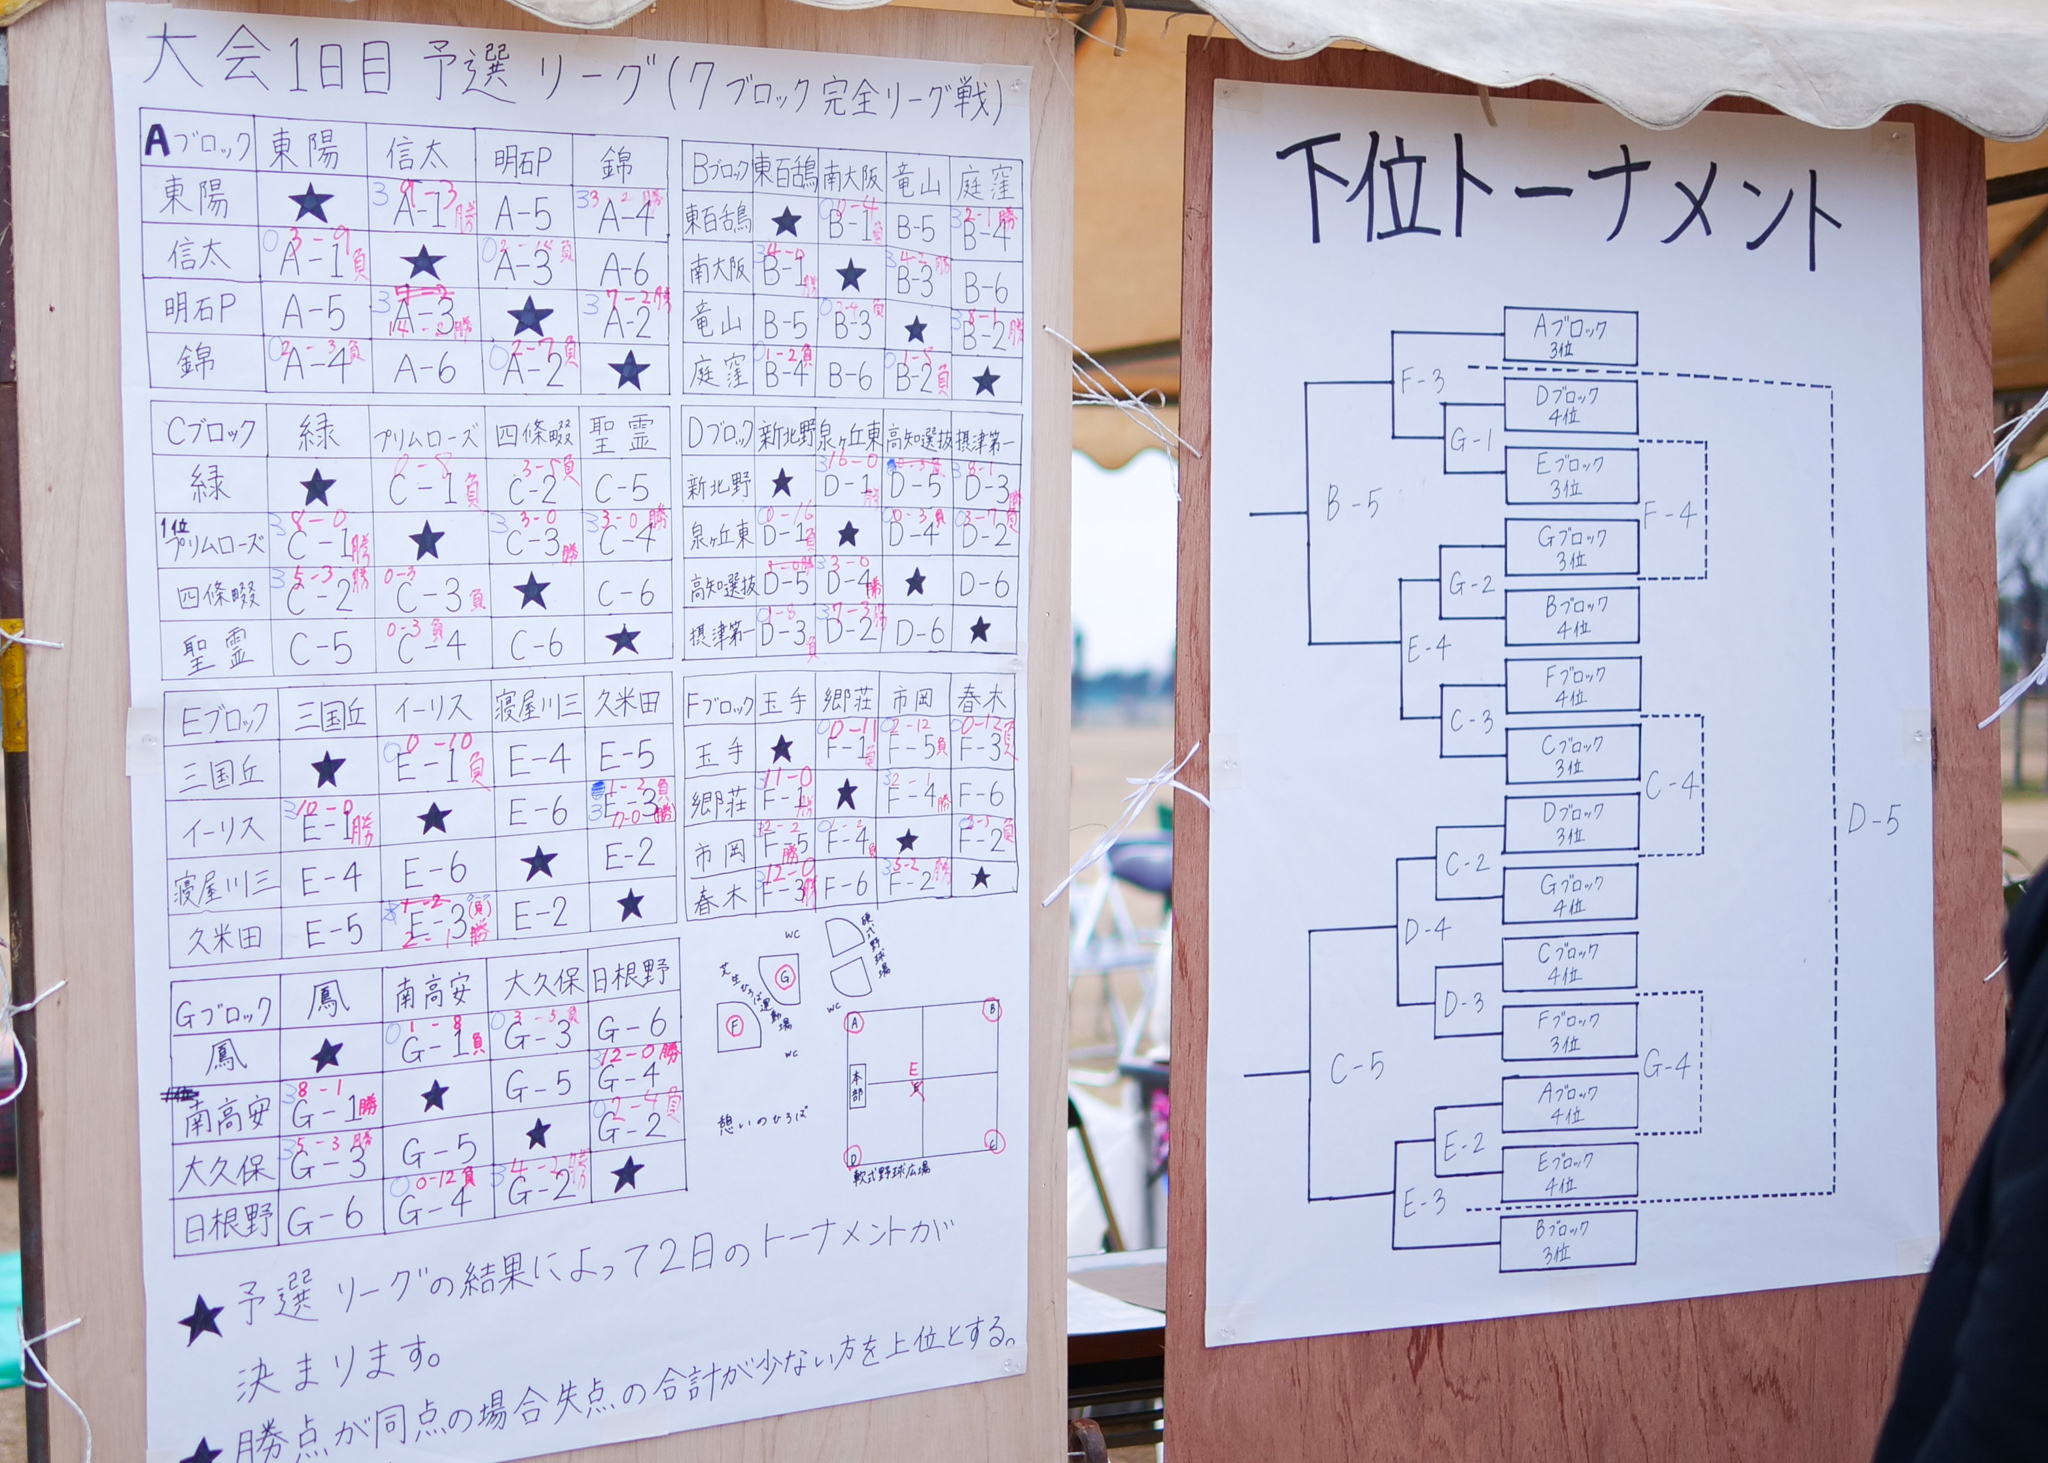 大会1日目 予選リーグ(7ブロック完全リーグ戦)
Aブロック 東陽 信太 明石P 錦
東陽 ★ 3 9-3 A-1 勝 A-5 3 3-2 勝 A-4
信太 0 3-9 A-1 負 ★ 0 A-3 負 A-6
明石P A-5 3 A-3 勝 ★ 3 7-2 勝 A-2
錦 0 2-3 負 A-4 A-6 0 2-7 負 A-2 ★
Bブロック 東百舌鳥 南大阪 竜山 庭窪
東百舌鳥 ★ 0 0-4 B-1 負 B-5 3 2-1 勝 B-4
南大阪 3 4-0 B-1 勝 ★ 3 4-2 勝 B-3 B-6
竜山 B-5 0 2-4 負 B-3 ★ 3 8-1 B-2 勝
庭窪 0 1-2 負 B-4 B-6 0 1-8 B-2 負 ★
Cブロック 緑 プリムローズ 四條畷 聖霊
緑 ★ 0-8 C-1 負 3-5 負 C-2 C-5
1位
プリムローズ 3 8-0 C-1 勝 ★ 3 3-0 C-3 勝 3 3-0 勝 C-4
四條畷 3 5-3 勝 C-2 0-3 C-3 負 ★ C-6
聖霊 C-5 0-3 負 C-4 C-6 ★
Dブロック 新北野 泉ヶ丘東 高知選抜 摂津第一
新北野 ★ 3 16-0 D-1 勝 0-3 負 D-5 3 8-1 D-3 勝
泉ヶ丘東 0 0-16 D-1 負 ★ 0 0-3 負 D-4 0 3-7 負 D-2
高知選抜 3-0 勝 D-5 3 3-0 D-4 勝 ★ D-6
摂津第一 0 1-8 D-3 負 3 7-3 勝 D-2 D-6 ★
Eブロック 三国丘 イーリス 寝屋川三 久米田
三国丘 ★ 0 0-10 E-1 負 E-4 E-5
イーリス 3 10-0 E-1 勝 ★ E-6 1-2 負 3 E-3 7-0 勝
寝屋川三 E-4 E-6 ★ E-2
久米田 E-5 E-3 (負) 2-1 勝 E-2 ★
Fブロック 玉手 郷荘 市岡 春木
玉手 ★ 0 0-11 F-1 負 0 2-12 F-5 負 0 0-12 F-3 負
郷荘 3 11-0 F-1 勝 ★ 3 2-1 F-4 勝 F-6
市岡 12-2 F-5 勝 0 1-2 F-4 負 ★ 0 負 F-2
春木 3 12-0 F-3 勝 F-6 3 5-2 勝 F-2 ★
Gブロック 鳳 南高安 大久保 日根野
鳳 ★ 0 1-8 G-1 負 0 3-5 負 G-3 G-6
南高安 3 8-1 G-1 勝 ★ G-5 3 12-0 勝 G-4
大久保 3 5-3 勝 G-3 G-5 ★ 0 2-4 負 G-2
日根野 G-6 0 0-12 負 G-4 3 4-2 勝 G-2 ★
WC
硬式野球場
芝生ひろば運動場
G
F
WC
WC
A
B
本部
E
憩いのひろば
D
C
軟式野球広場
★ 予選リーグの結果によって2日のトーナメントが
決まります。
★ 勝点が同点の場合失点の合計が少ない方を上位とする。
下位トーナメント
Aブロック
3位
F-3
Dブロック
4位
G-1
Eブロック
3位
B-5
F-4
Gブロック
3位
G-2
Bブロック
4位
E-4
Fブロック
4位
C-3
Cブロック
3位
C-4
D-5
Dブロック
3位
C-2
Gブロック
4位
D-4
Cブロック
4位
D-3
Fブロック
3位
C-5
G-4
Aブロック
4位
E-2
Eブロック
4位
E-3
Bブロック
3位